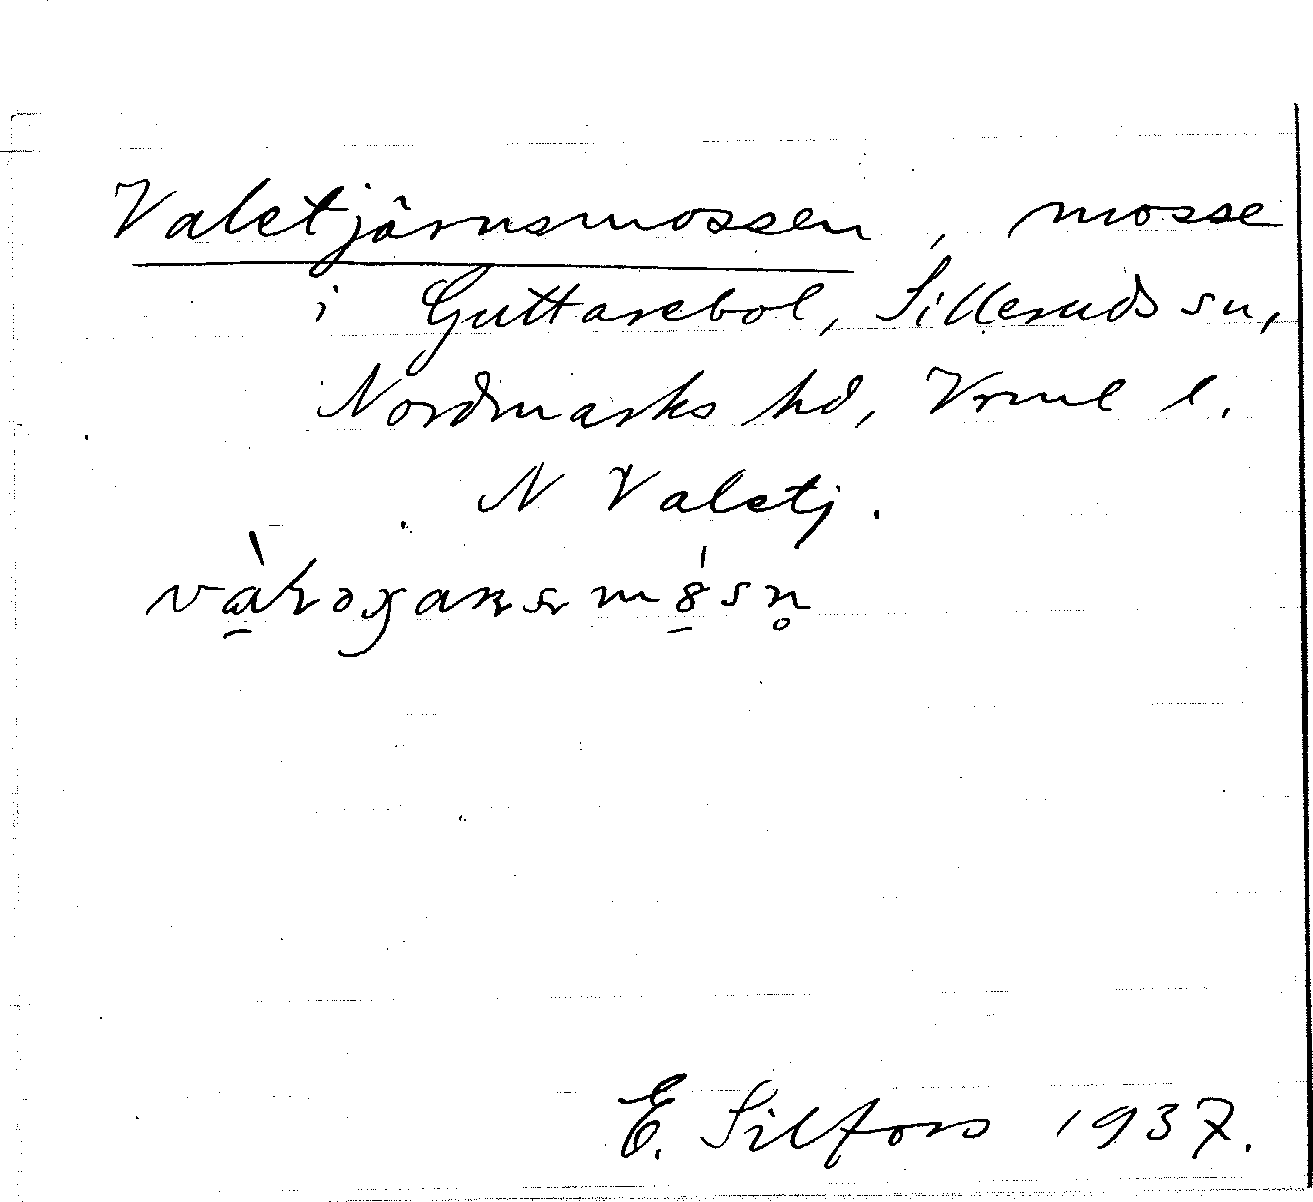 Valetjärnsmossen, mosse
i Guttarebol, Silleruds sn,
Nordmarks hd, Vrml l.
N Valetj.
E. Silfors 1937.